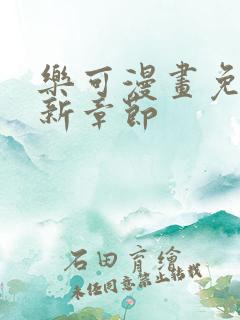 樂可漫畫免
新章節
石田育繪
未經同意禁止轉載